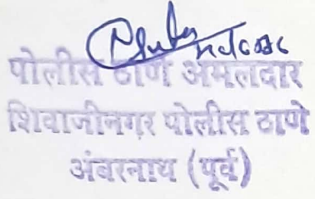 पोलीस ठाणे अंमलदार
शिवाजीनगर पोलीस ठाणे
अंबरनाथ (पूर्व)